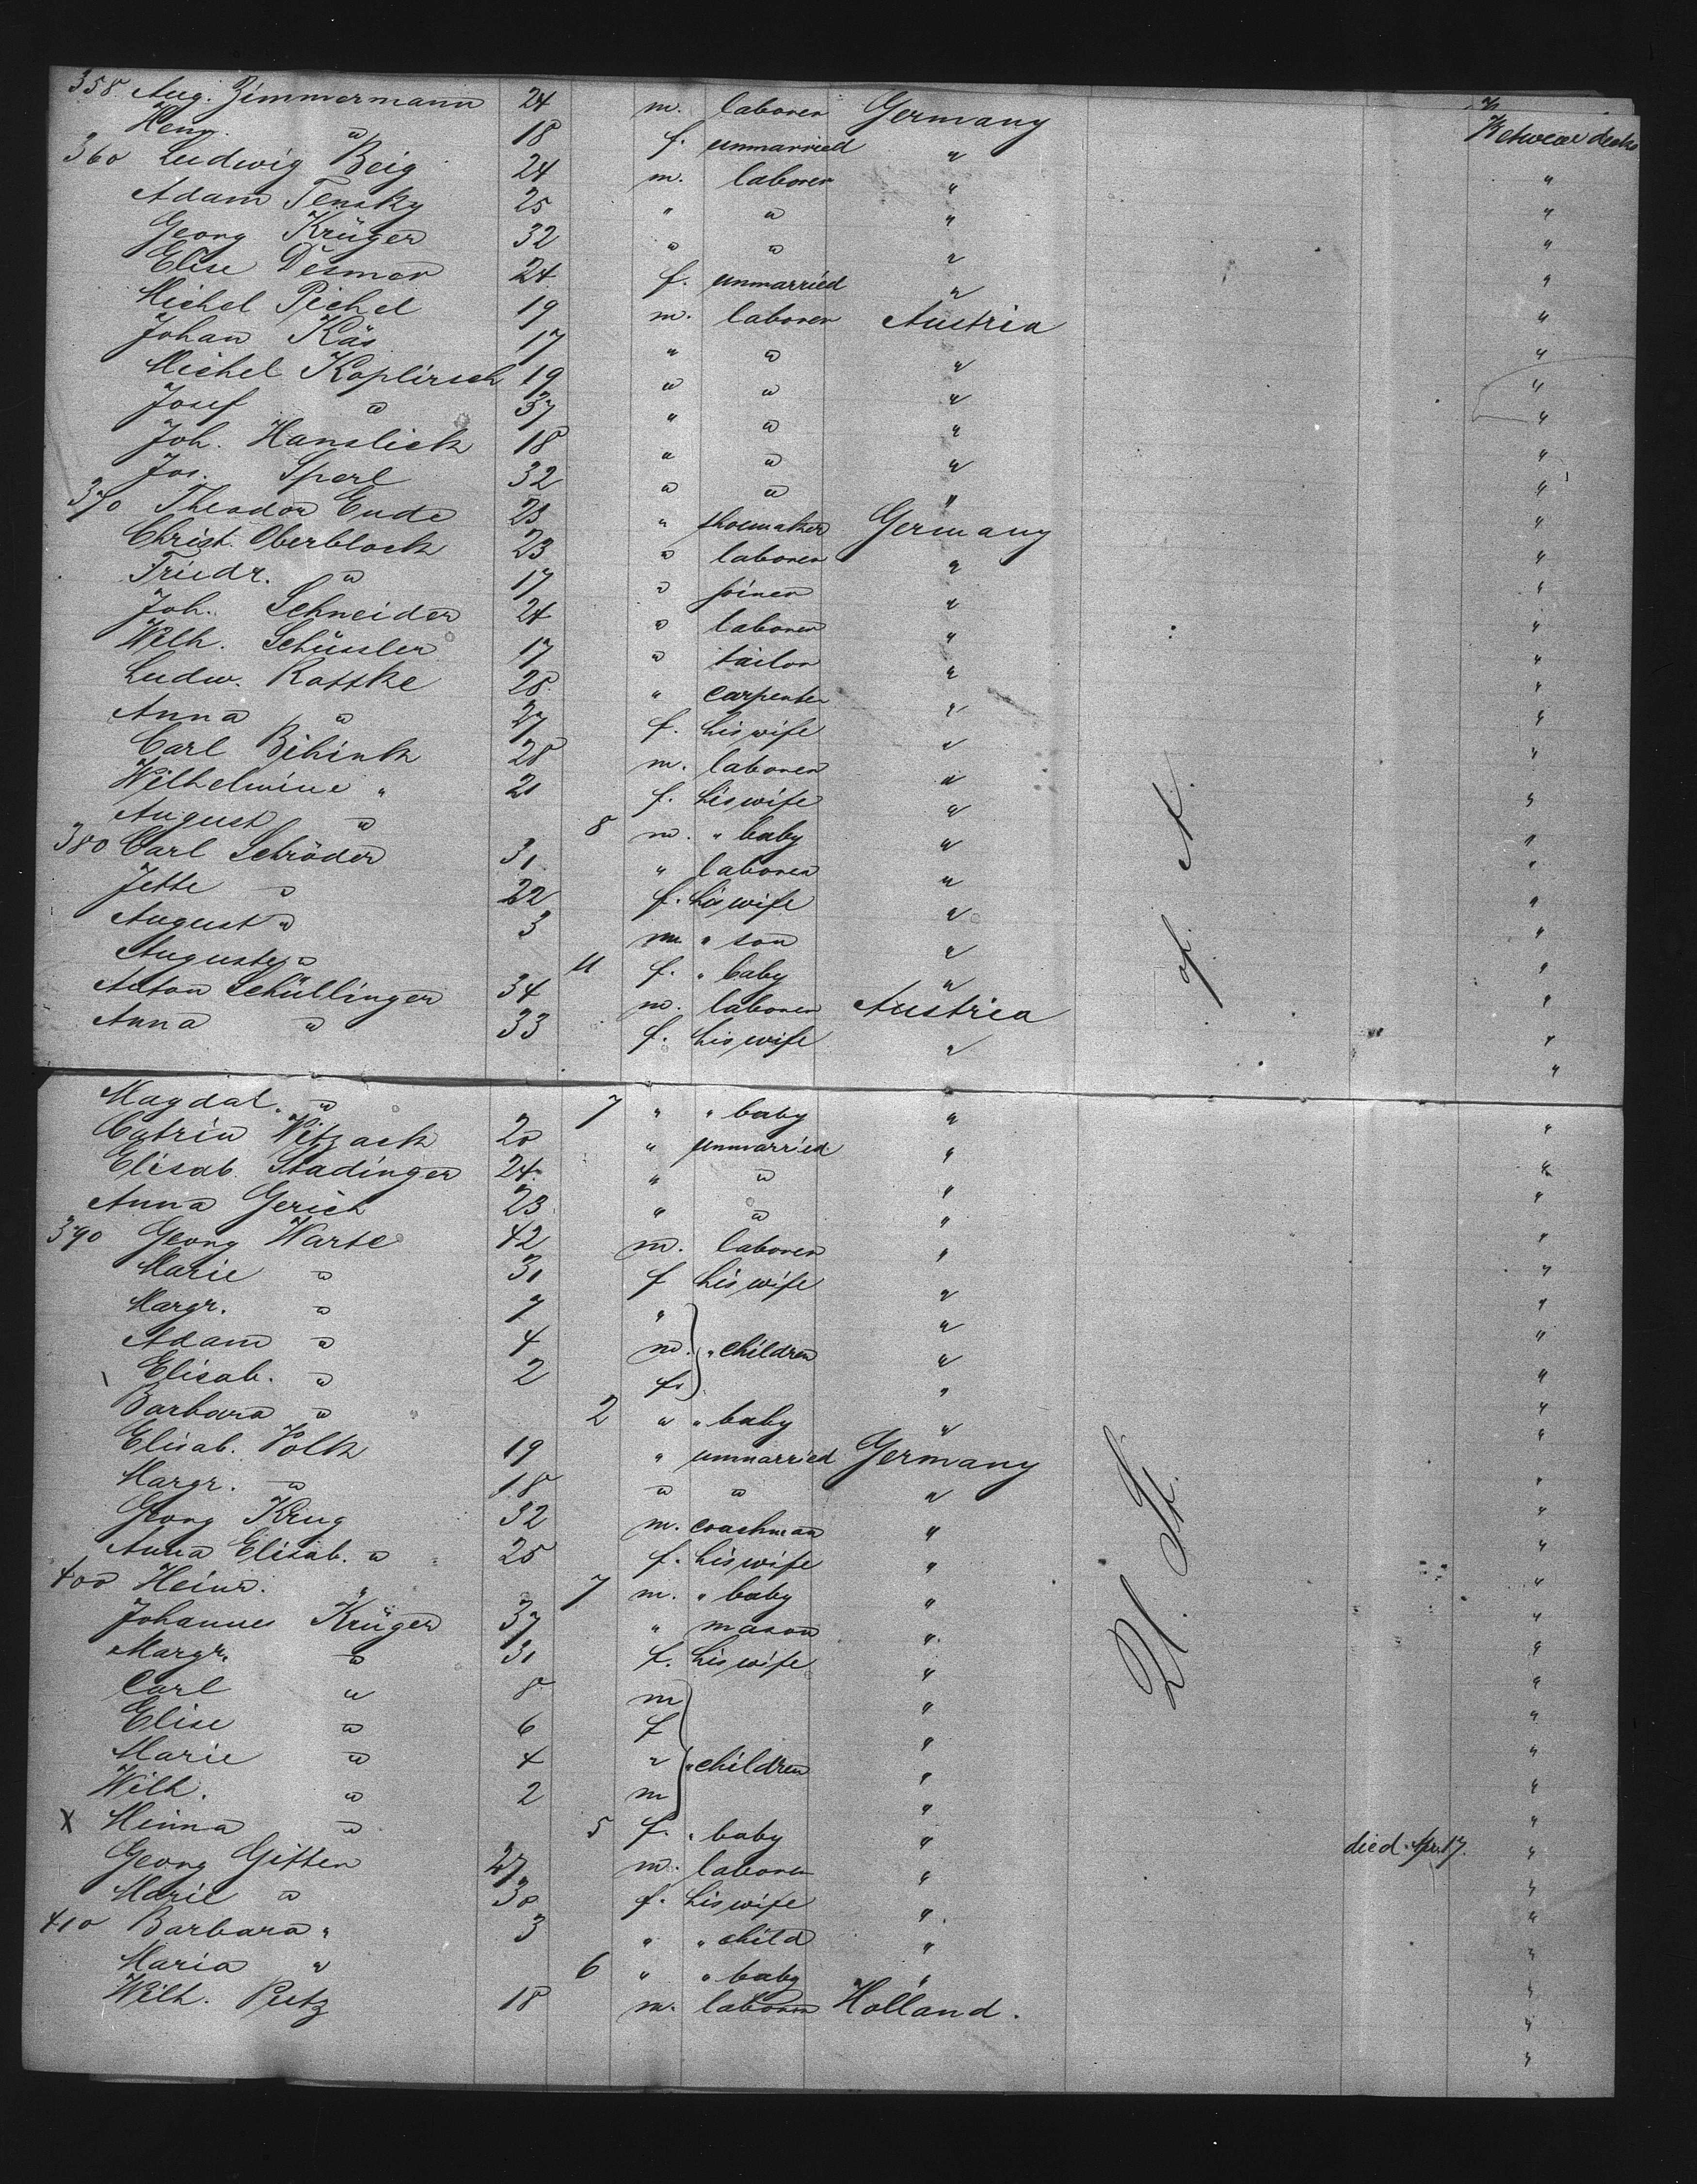 358 Aug. Zimmermann 24 m. laborer Germany Between decks
" 18 f. unmarried " "
360 Ludwig Beig 24 m. laborer " "
Adam Tensky 25 " " " "
Georg Krüger 32 " " " "
Elise Desmar 24 f. unmarried " "
Michel Pichel 19 m. laborer Austria "
Johan Käs 17 " " " "
Michel Koplirsch 19 " " " "
Josef " 37 " " " "
Joh. Hanslick 18 " " " "
Jos. Sperl 32 " " " "
370 Theodor Ende 23 " shoemaker Germany "
Christ. Oberblock 23 " laborer " "
Friedr. " 17 " joiner " "
Joh. Schneider 24 " laborer " "
Wilh. Schüssler 17 " tailor " "
Ludw. Rattke 28 " carpenter " "
Anna " 27 f. his wife " "
Carl Bihink 28 m. laborer " "
Wilhelmine " 21 f. his wife " "
August " 8 m. " baby " "
380 Carl Schröder 31 " laborer " "
Jette " 22 f. his wife " "
August " 3 m. " son " "
Auguste " 11 f. " baby " "
Anton Schüllinger 34 m. laborer Austria "
Anna " 33 f. his wife " "
Magdal. " 7 " " baby " "
Catrin Witzack 20 " unmarried " "
Elisab. Stadinger 24 " " " "
Anna Gerich 23 " " " "
390 Georg Warte 42 m. laborer " "
Marie " 31 f his wife " "
Margr. " 7 " " "
Adam " 4 m. " children " "
Elisab. " 2 f. " "
Barbara " 2 " " baby " "
Elisab. Volk 19 " unmarried Germany "
Margr. " 18 " " " "
Georg Krug 32 m. coachman " "
Anna Elisab. " 25 f. his wife " "
400 Heinr. " 7 m. " baby " "
Johannes Krüger 37 " mason " "
Margr. " 31 f. his wife " "
Carl " 8 m " "
Elise " 6 f " "
Marie " 4 " " children " "
Wilh. " 2 m " "
X Minna " 5 f. " baby " died Apr. 17. "
Georg Gitter 27 m. laborer " "
Marie " 30 f. his wife " "
410 Barbara " 3 " " child " "
Maria " 6 " " baby " "
Wilh. Putz 18 m. laborer Holland. "